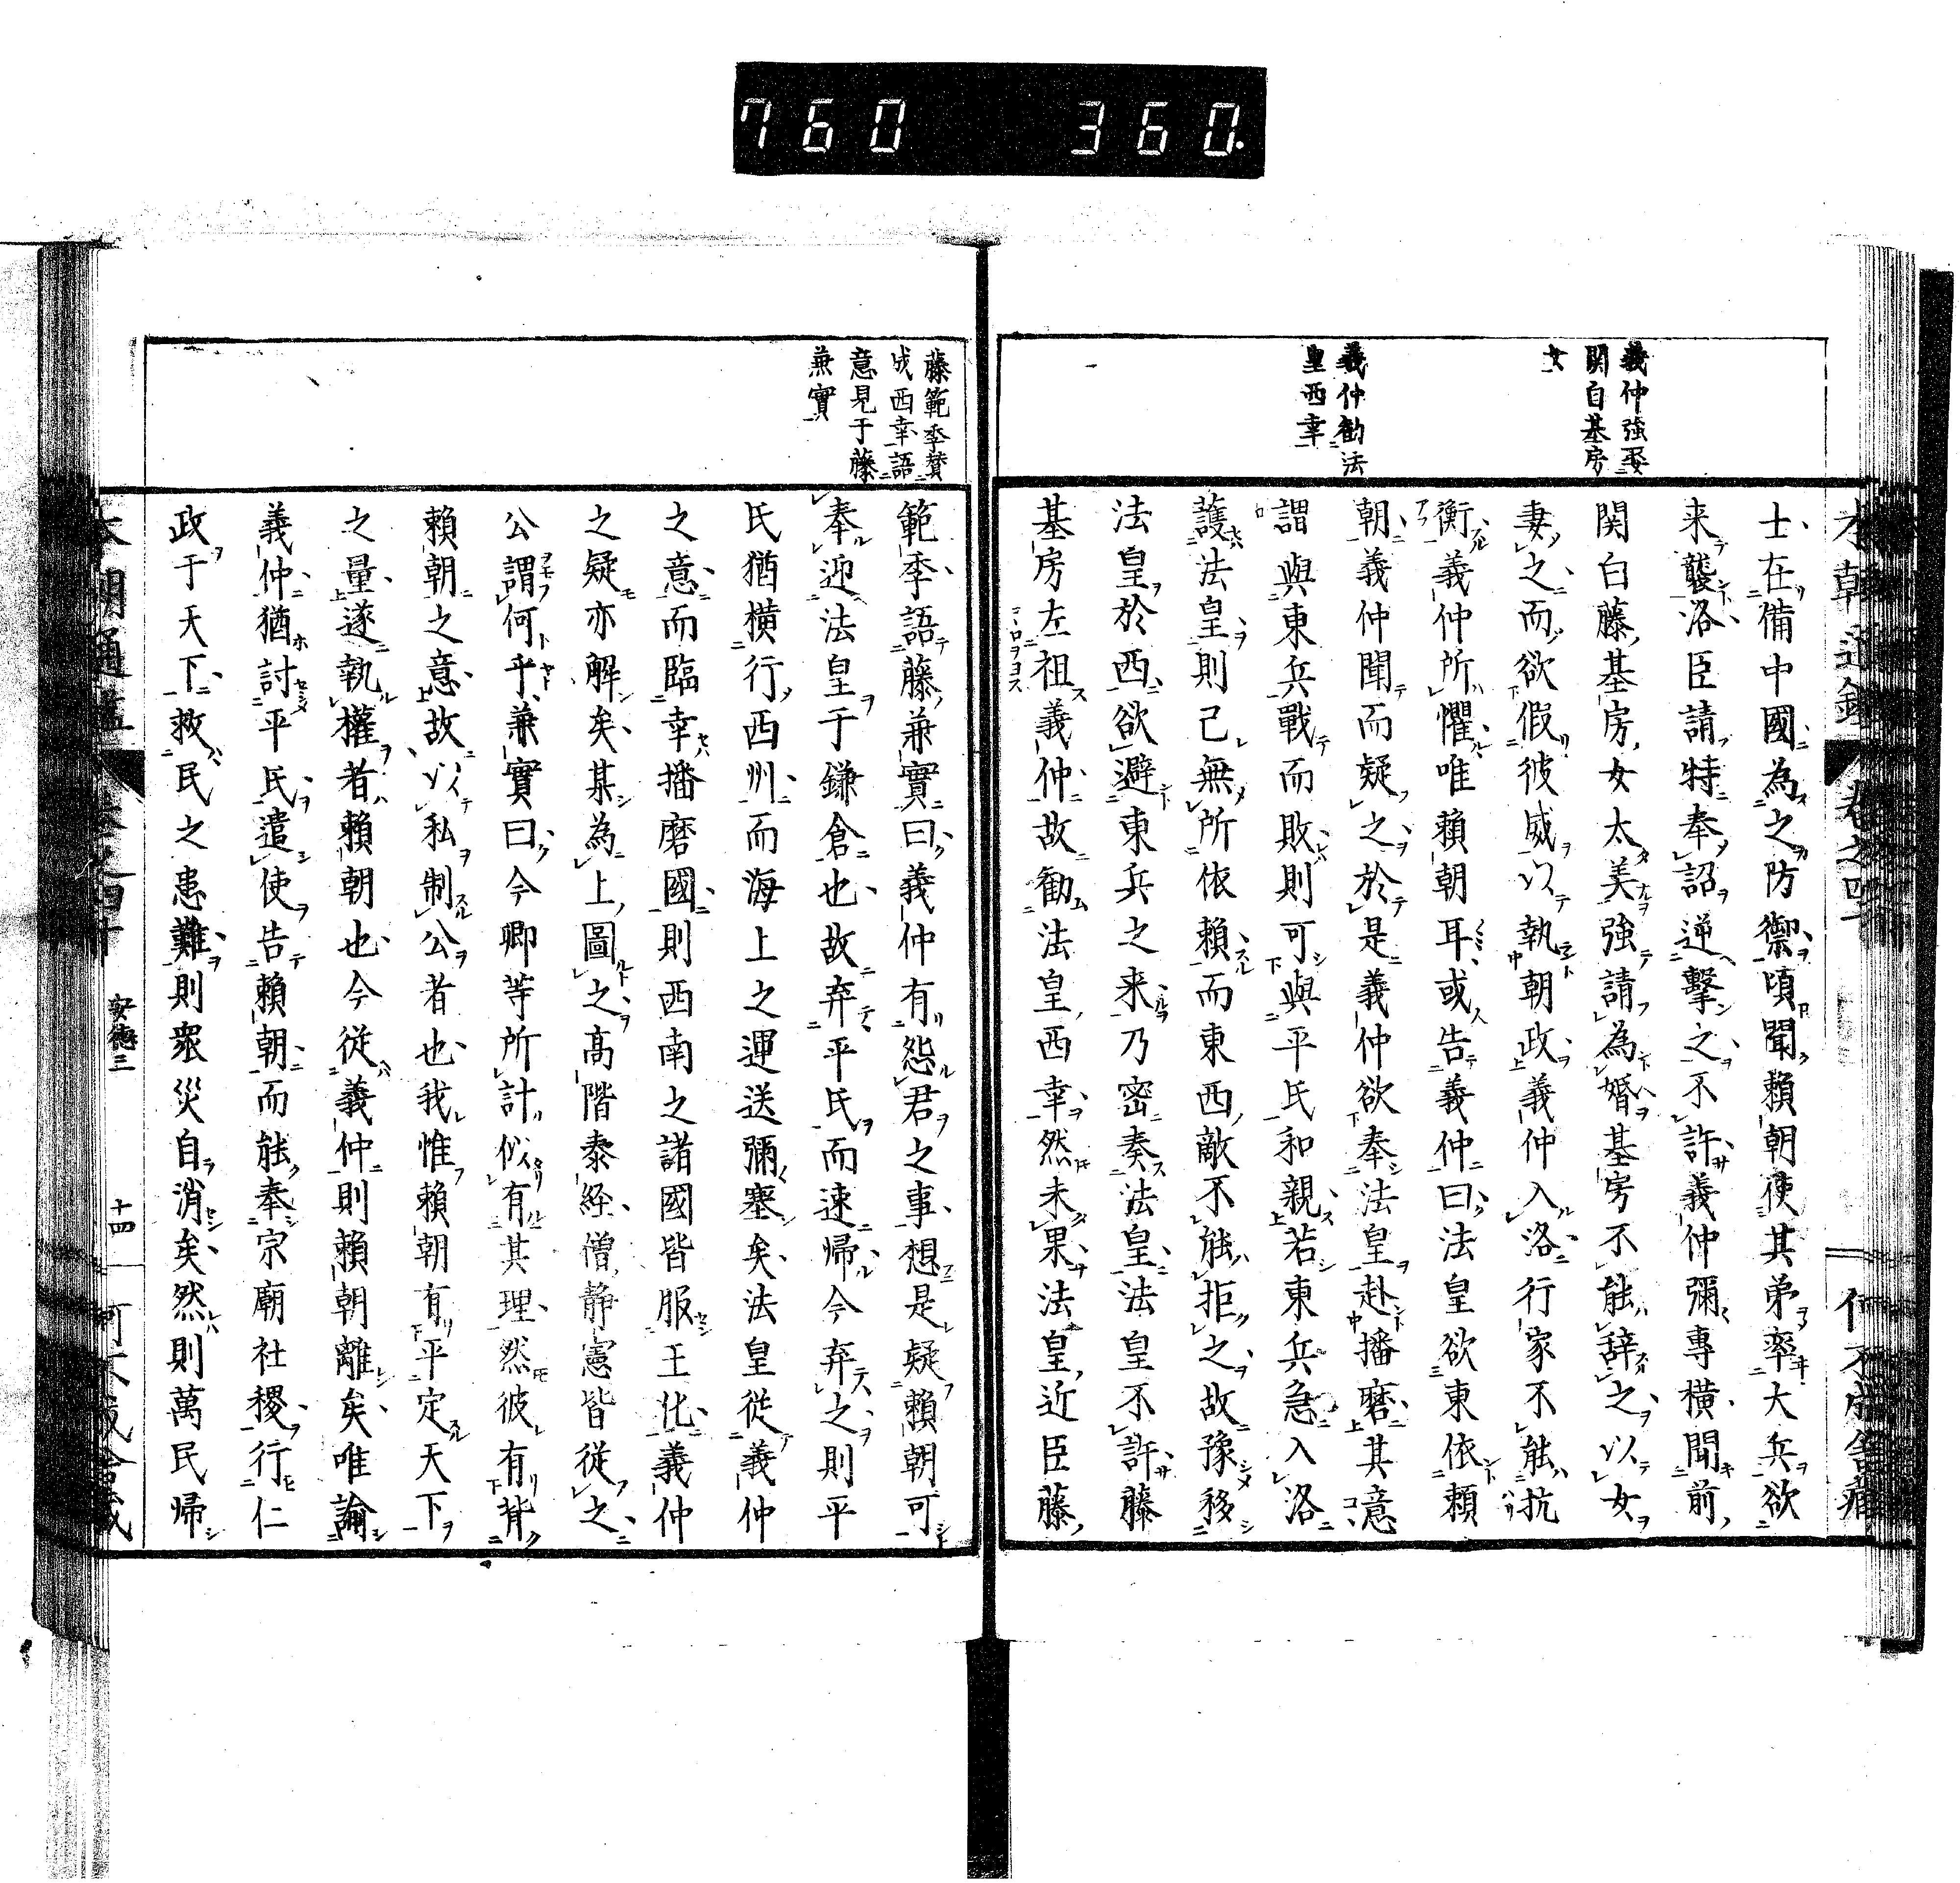 760 360.
義仲強娶
関白基房
女
義仲勧法
皇西幸
士在備中國為之防禦頃聞賴朝使其弟率大兵欲
来襲洛臣請特奉詔逆擊之不許義仲彌專横聞前
関白藤基房女太美強請為婚基房不能辞之以女
妻之而欲假彼威以執朝政義仲入洛行家不能抗
衡義仲所懼唯賴朝耳或告義仲曰法皇欲東依賴
朝義仲聞而疑之於是義仲欲奉法皇赴播磨其意
謂與東兵戰而敗則可與平氏和親若東兵急入洛
護法皇則己無所依賴而東西敵不能拒之故豫移
法皇於西欲避東兵之来乃密奏法皇法皇不許藤
基房左祖義仲故勧法皇西幸然未果法皇近臣藤
藤範季賛
成西幸語
意見于藤
兼實
範季語藤兼實曰義仲有怨君之事想是疑賴朝可
奉迎法皇于鎌倉也故弃平氏而速帰今弃之則平
氏猶横行西州而海上之運送彌塞矣法皇従義仲
之意而臨幸播磨國則西南之諸國皆服王化義仲
之疑亦解矣某為上圖之高階泰経僧静憲皆従之
公謂何乎兼實曰今卿等所計似有其理然彼有背
賴朝之意故以私制公者也我惟賴朝有平定天下
之量遂執權者賴朝也今従義仲則賴朝離矣唯諭
義仲猶討平氏遣使告賴朝而能奉宗廟社稷行仁
政于天下救民之患難則衆災自消矣然則萬民帰
安徳三
十四